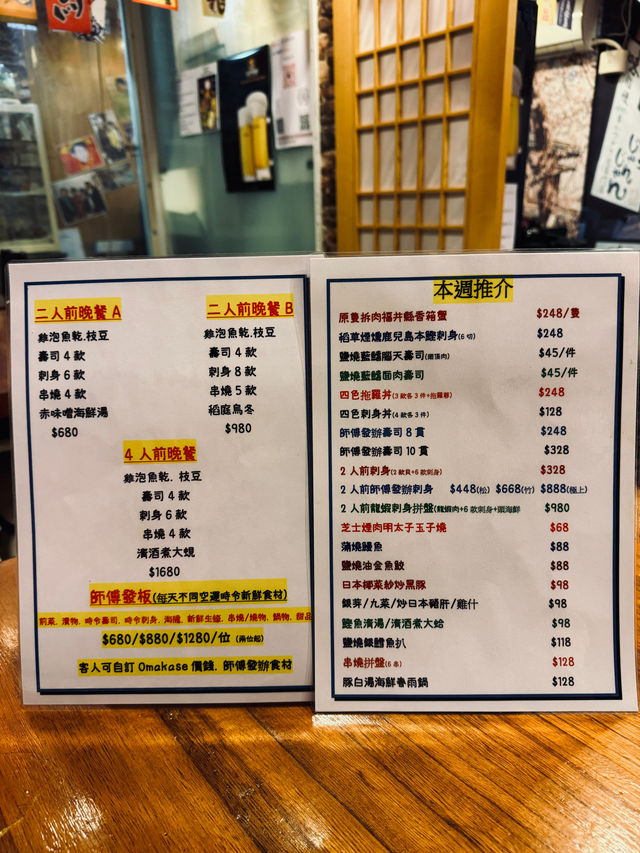 二人前晚餐 A
雞泡魚乾.枝豆
壽司 4 款
刺身 6 款
串燒 4 款
赤味噌海鮮湯
$680
二人前晚餐 B
雞泡魚乾.枝豆
壽司 4 款
刺身 8 款
串燒 5 款
稻庭烏冬
$980
4 人前晚餐
雞泡魚乾. 枝豆
壽司 4 款
刺身 6 款
串燒 4 款
清酒煮大蜆
$1680
師傅發板(每天不同空運時令新鮮食材)
前菜, 漬物, 時令壽司, 時令刺身, 海膽, 新鮮生蠔, 串燒/燒物, 鍋物, 甜品
$680/$880/$1280/位 (兩位起)
客人可自訂 Omakase 價錢, 師傅發辦食材
本週推介
原隻拆肉福井縣香箱蟹 $248/隻
稻草煙燻鹿兒島本鰹刺身(6 切) $248
鹽燒藍鰭腦天壽司(頭頂肉) $45/件
鹽燒藍鰭面肉壽司 $45/件
四色拖羅丼(3 款各 3 件+拖羅蓉) $248
四色刺身丼(4 款各 3 件) $128
師傅發辦壽司 8 貫 $248
師傅發辦壽司 10 貫 $328
2 人前刺身(2 款貝+6 款刺身) $328
2 人前師傅發辦刺身 $448(松) $668(竹) $888(極上)
2 人前龍蝦刺身拼盤(龍蝦肉+6 款刺身+頭海鮮 $980
芝士煙肉明太子玉子燒 $68
蒲燒鰻魚 $88
鹽燒油金魚鮫 $88
日本椰菜紗炒黑豚 $98
銀芽/九菜/炒日本豬肝/雞什 $98
鰹魚清湯/清酒煮大蛤 $98
鹽燒銀鱈魚扒 $118
串燒拼盤(6 串) $128
豚白湯海鮮春雨鍋 $128